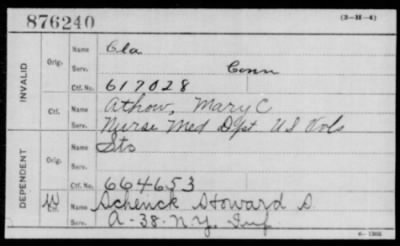 876240
(3-H-4)
INVALID
Orig.
Name Cla
Serv. Conn
Ctf. No. 617028
Ctf.
Name Athow, Mary C
Serv. Nurse Med Dpt US Vols
DEPENDENT
Orig.
Name Sts
Serv.
Ctf. No. 664653
W
Ctf.
Name Schenck Howard S
Serv. A-38-N.Y. Inf